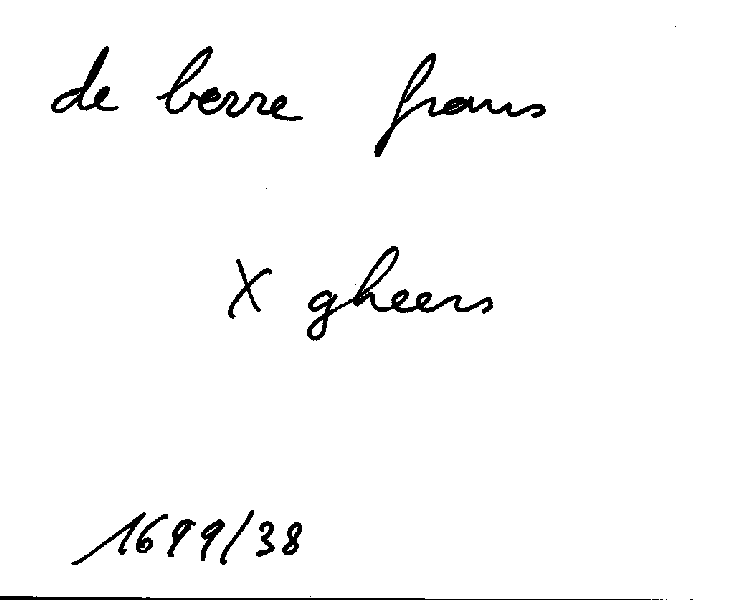 de berre frans
X gheers
1699/38